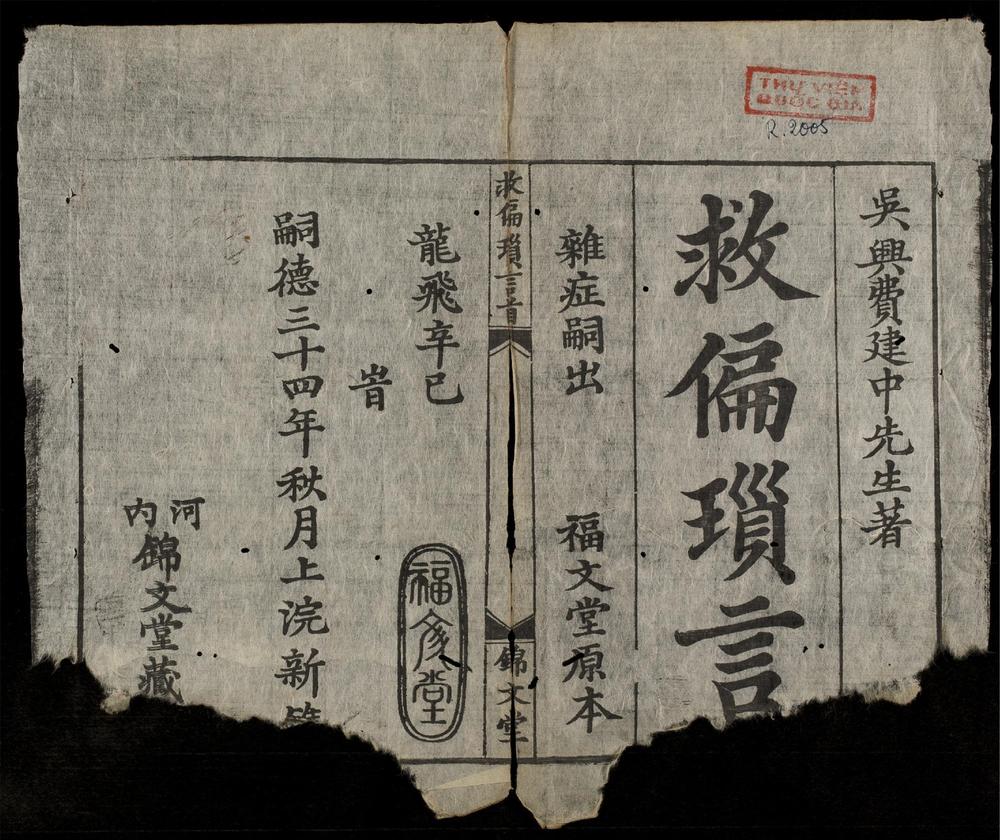 THƯ VIỆN
QUỐC GIA
R.2005
吳興費建中先生著
救偏瑣言
雜症嗣出 福文堂原本
救偏瑣言首
錦文堂
龍飛辛巳
福文堂
嗣德三十四年秋月上浣新
河內
錦文堂藏